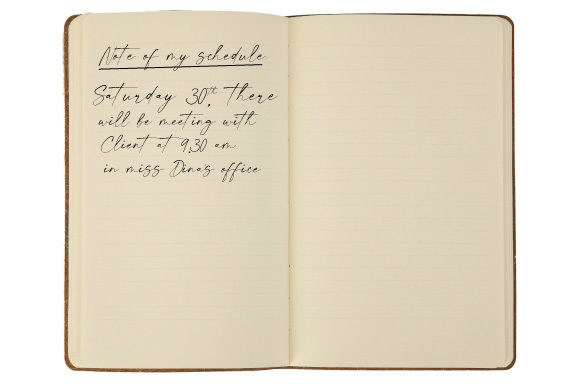 Note of my schedule
Saturday 30th, there
will be meeting with
Client at 9,30 am
in miss Dinas office